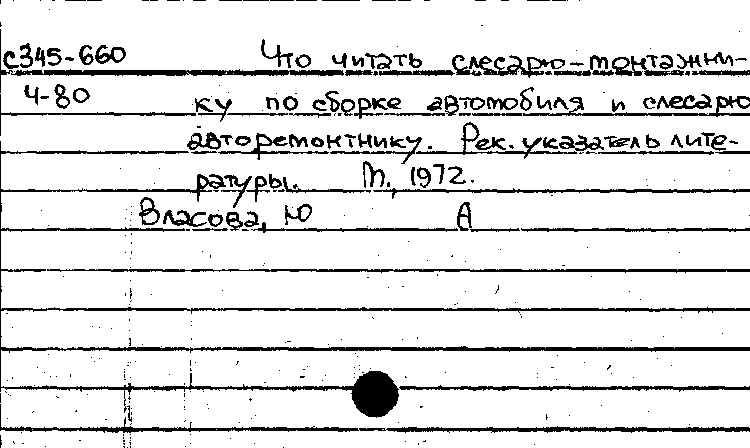 с345-660 Что читать слесарю-монтажни-
4-80 ку по сборке автомобиля и слесарю
авторемонтнику. Рек. указатель лите-
ратуры. М., 1972.
Власова, Ю А